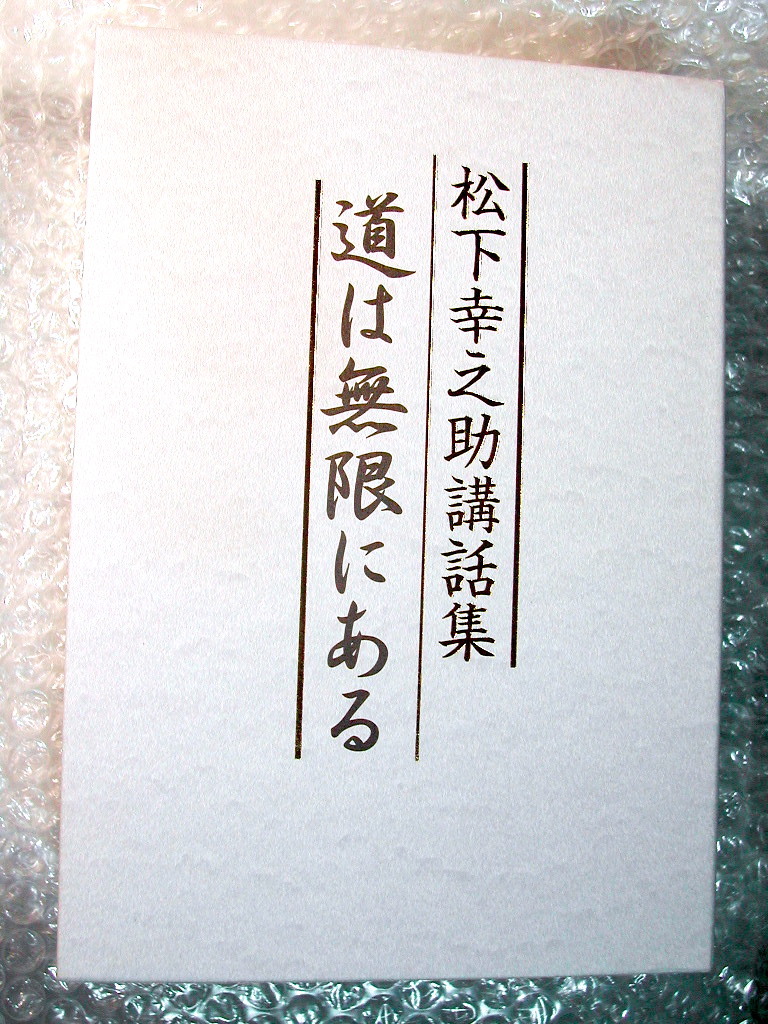 松下幸之助講話集
道は無限にある